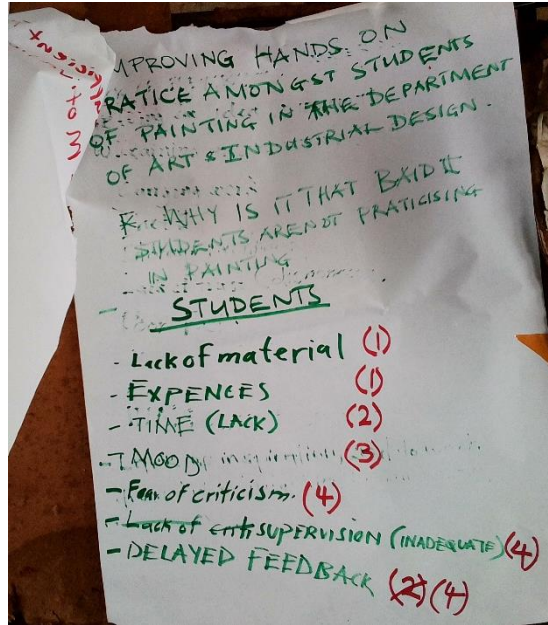 IMPROVING HANDS ON
PRATICE AMONGST STUDENTS
OF PAINTING IN THE DEPARTMENT
OF ART & INDUSTRIAL DESIGN.
WHY IS IT THAT BAID II
STUDENTS ARE NOT PRATICISING
IN PAINTING
- STUDENTS
- Lack of material (1)
- EXPENCES (1)
- TIME (LACK) (2)
- MOOD (3)
- Fear of criticism. (4)
- Lack of SUPERVISION (INADEQUATE) (4)
- DELAYED FEEDBACK (2) (4)